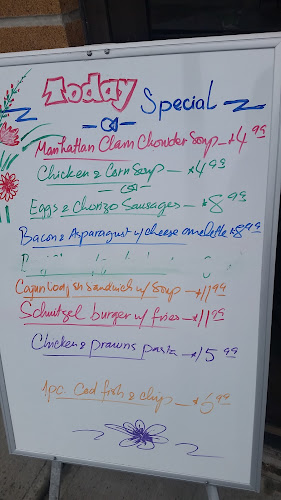 Today Special
Manhattan Clam Chowder Soup - $4.99
Chicken & Corn Soup - $4.99
Eggs & Chorizo Sausages - $8.99
Bacon & Asparagust w/ cheese omelette $8.99
Cajan Cod fish Sandwich w/ Soup - $11.99
Schnitzel burger w/ fries - $11.99
Chicken & prawns pasta - $15.99
1pc. Cod fish & chip - $